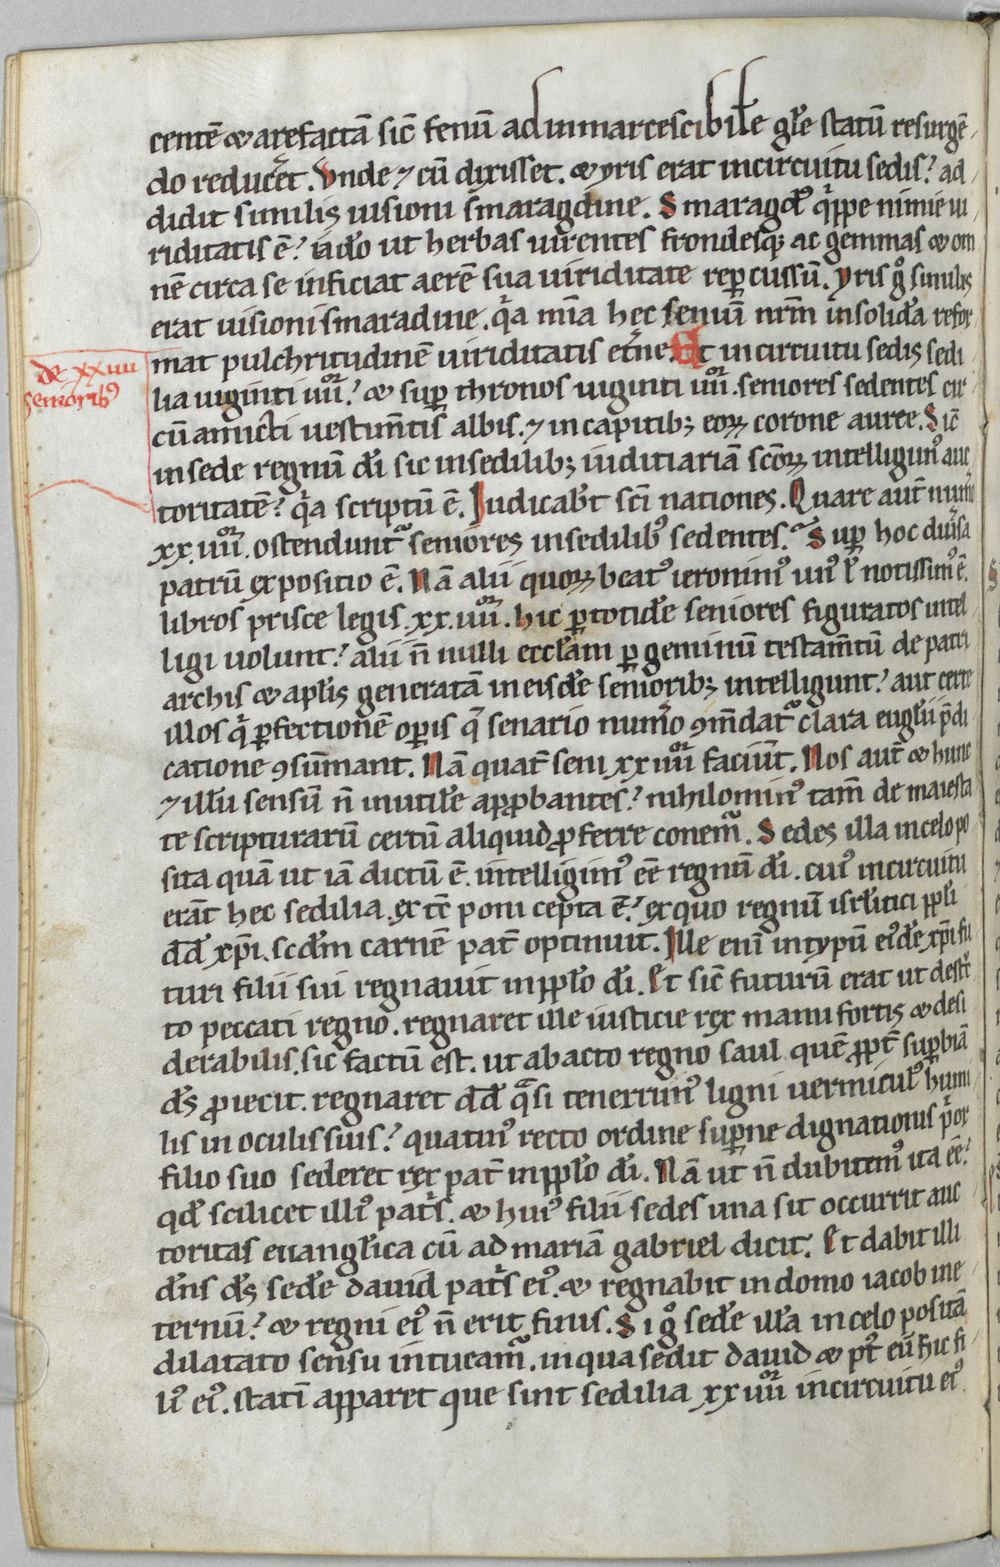 centē & arefactā sic̄ fenū ad inmarcescibile gl̄e statū resurgē
do reduceret. Vnde ⁊ cū dixisset. & yris erat incircuitu sedis? ad
didit similis uisioni smaragdine. Smaragd' qͥppe nimie ui
riditatis ē? adeo ut herbas uirentes frondesq; ac gemmas & om
nē circa se inficiat aerē sua uiriditate repercussū. Yris gͦ similis
erat uisioni smaradine. qͥa mīa hec fenum nr̄m insolida refor
mat pulchritudinē uiriditatis et̄ne. Et incircuitu sedis sedi
de xxiiii
senioribꝰ
lia uiginti iiiior? & sup̲ thronos uiginti iiiior. seniores sedentes cir
cū amicti uestim̄tis albis. ⁊ in capitib; eoꝝ corone auree. Sic̄
in sede regnū dī sic in sedilib; iuditiariā sc̄oꝝ intelligimꝰ auc
toritatē? qͥa scriptū ē. Iudicabt̄ sc̄i nationes. Quare aut̄ num̄o
xx.iiiior. ostendunt᷑ seniores insedilibꝰ sedentes? Sup̲ hoc diuersa
patrū expositio ē. Nā alii quoꝝ beatꝰ ieronimꝰ unꝰ ł notissimꝰ ē.
libros prisce legis .xx.iiiior. hic p̲ totidē seniores figuratos intel
ligi uolunt? alii n̄ nulli eccl̄am p̲ geminū testam̄tū de patri
archis & apl̄is generatā in eisdē seniorib; intelligunt? aut certe
illos qͥ p̲fectionē op̲is q̄ senario num̄o ꝯm̄dat᷑ clara eugl̄ii p̄di
catione ꝯsūmant. Nā quat̄ seni xx iiiior faciunt. Nos aut̄ & hunc
⁊ illū sensū n̄ inutilē approbantes? nihilominꝰ tam̄ de maiesta
te scripturarū certū aliquid ꝓferre conem᷑. Sedes illa in celo po
sita quā ut iā dictū ē. intelligimꝰ eē regnū dī. cuiꝰ incircuitu
erāt hec sedilia. ex tc̄ poni cepta ē? ex quo regnū isrl̄itici ppl̄i
dd̄ xp̄i. scd̄m carnē pat̄ optinuit. Ille enī in typū eiꝰdē xp̄i fu
turi filii sui regnauit in ppl̄o dī. Et sic̄ futurū erat ut destc̄
to peccati regno. regnaret ille iusticie rex manu fortis & desi
derabilis. sic factū est. ut abacto regno saul quē ꝓpt̄ sup̲biā
ds̄ ꝓiecit. regnaret dd̄ qͣsi tenerrimꝰ ligni uermiculꝰ humi
lis in oculis suis? quatinꝰ recto ordine sup̲ne dignationis p̄or
filio suo sederet rex pat̄ in ppl̄o dī. Nā ut n̄ dubitemꝰ ita eē?
qd̄ scilicet illiꝰ pat̄s. & huiꝰ filii sedes una sit occurrit auc
toritas euangl̄ica cū ad mariā gabriel dicit. Et dabit illi
dn̄s ds̄ sedē dauid pat̄s eiꝰ. & regnabit in domo iacob ine
ternū? & regni eiꝰ n̄ erit finis. Si gͦ sedē illā in celo positā
dilatato sensu intueam᷑. in qua sedit dauid & pꝰt eū hic fi
liꝰ eiꝰ. statī apparet que sint sedilia xx iiiior incircuitu eiꝰ